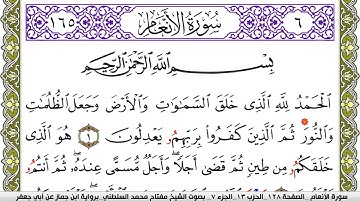 ٦ سُورَةُ الأَنْعَامِ ١٦٥
بِسْمِ اللَّهِ الرَّحْمَٰنِ الرَّحِيمِ
الْحَمْدُ لِلَّهِ الَّذِي خَلَقَ السَّمَٰوَٰتِ وَالْأَرْضَ وَجَعَلَ الظُّلُمَٰتِ
وَالنُّورَ ثُمَّ الَّذِينَ كَفَرُوا بِرَبِّهِمُ يَعْدِلُونَ ۝ هُوَ الَّذِي
خَلَقَكُمُ مِن طِينٍ ثُمَّ قَضَىٰ أَجَلًا وَأَجَلٌ مُّسَمًّى عِندَهُ ثُمَّ أَنتُمُ
سورة الأنعام . الصفحة ١٢٨ . الحزب ١٣ . الجزء ٧ . بصوت الشيخ مفتاح محمد السلطني برواية ابن جماز عن أبي جعفر